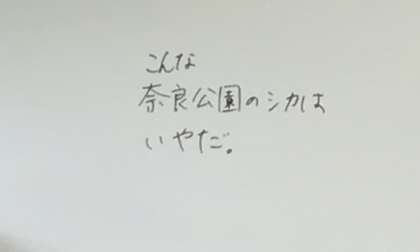 こんな
奈良公園のシカは
いやだ。